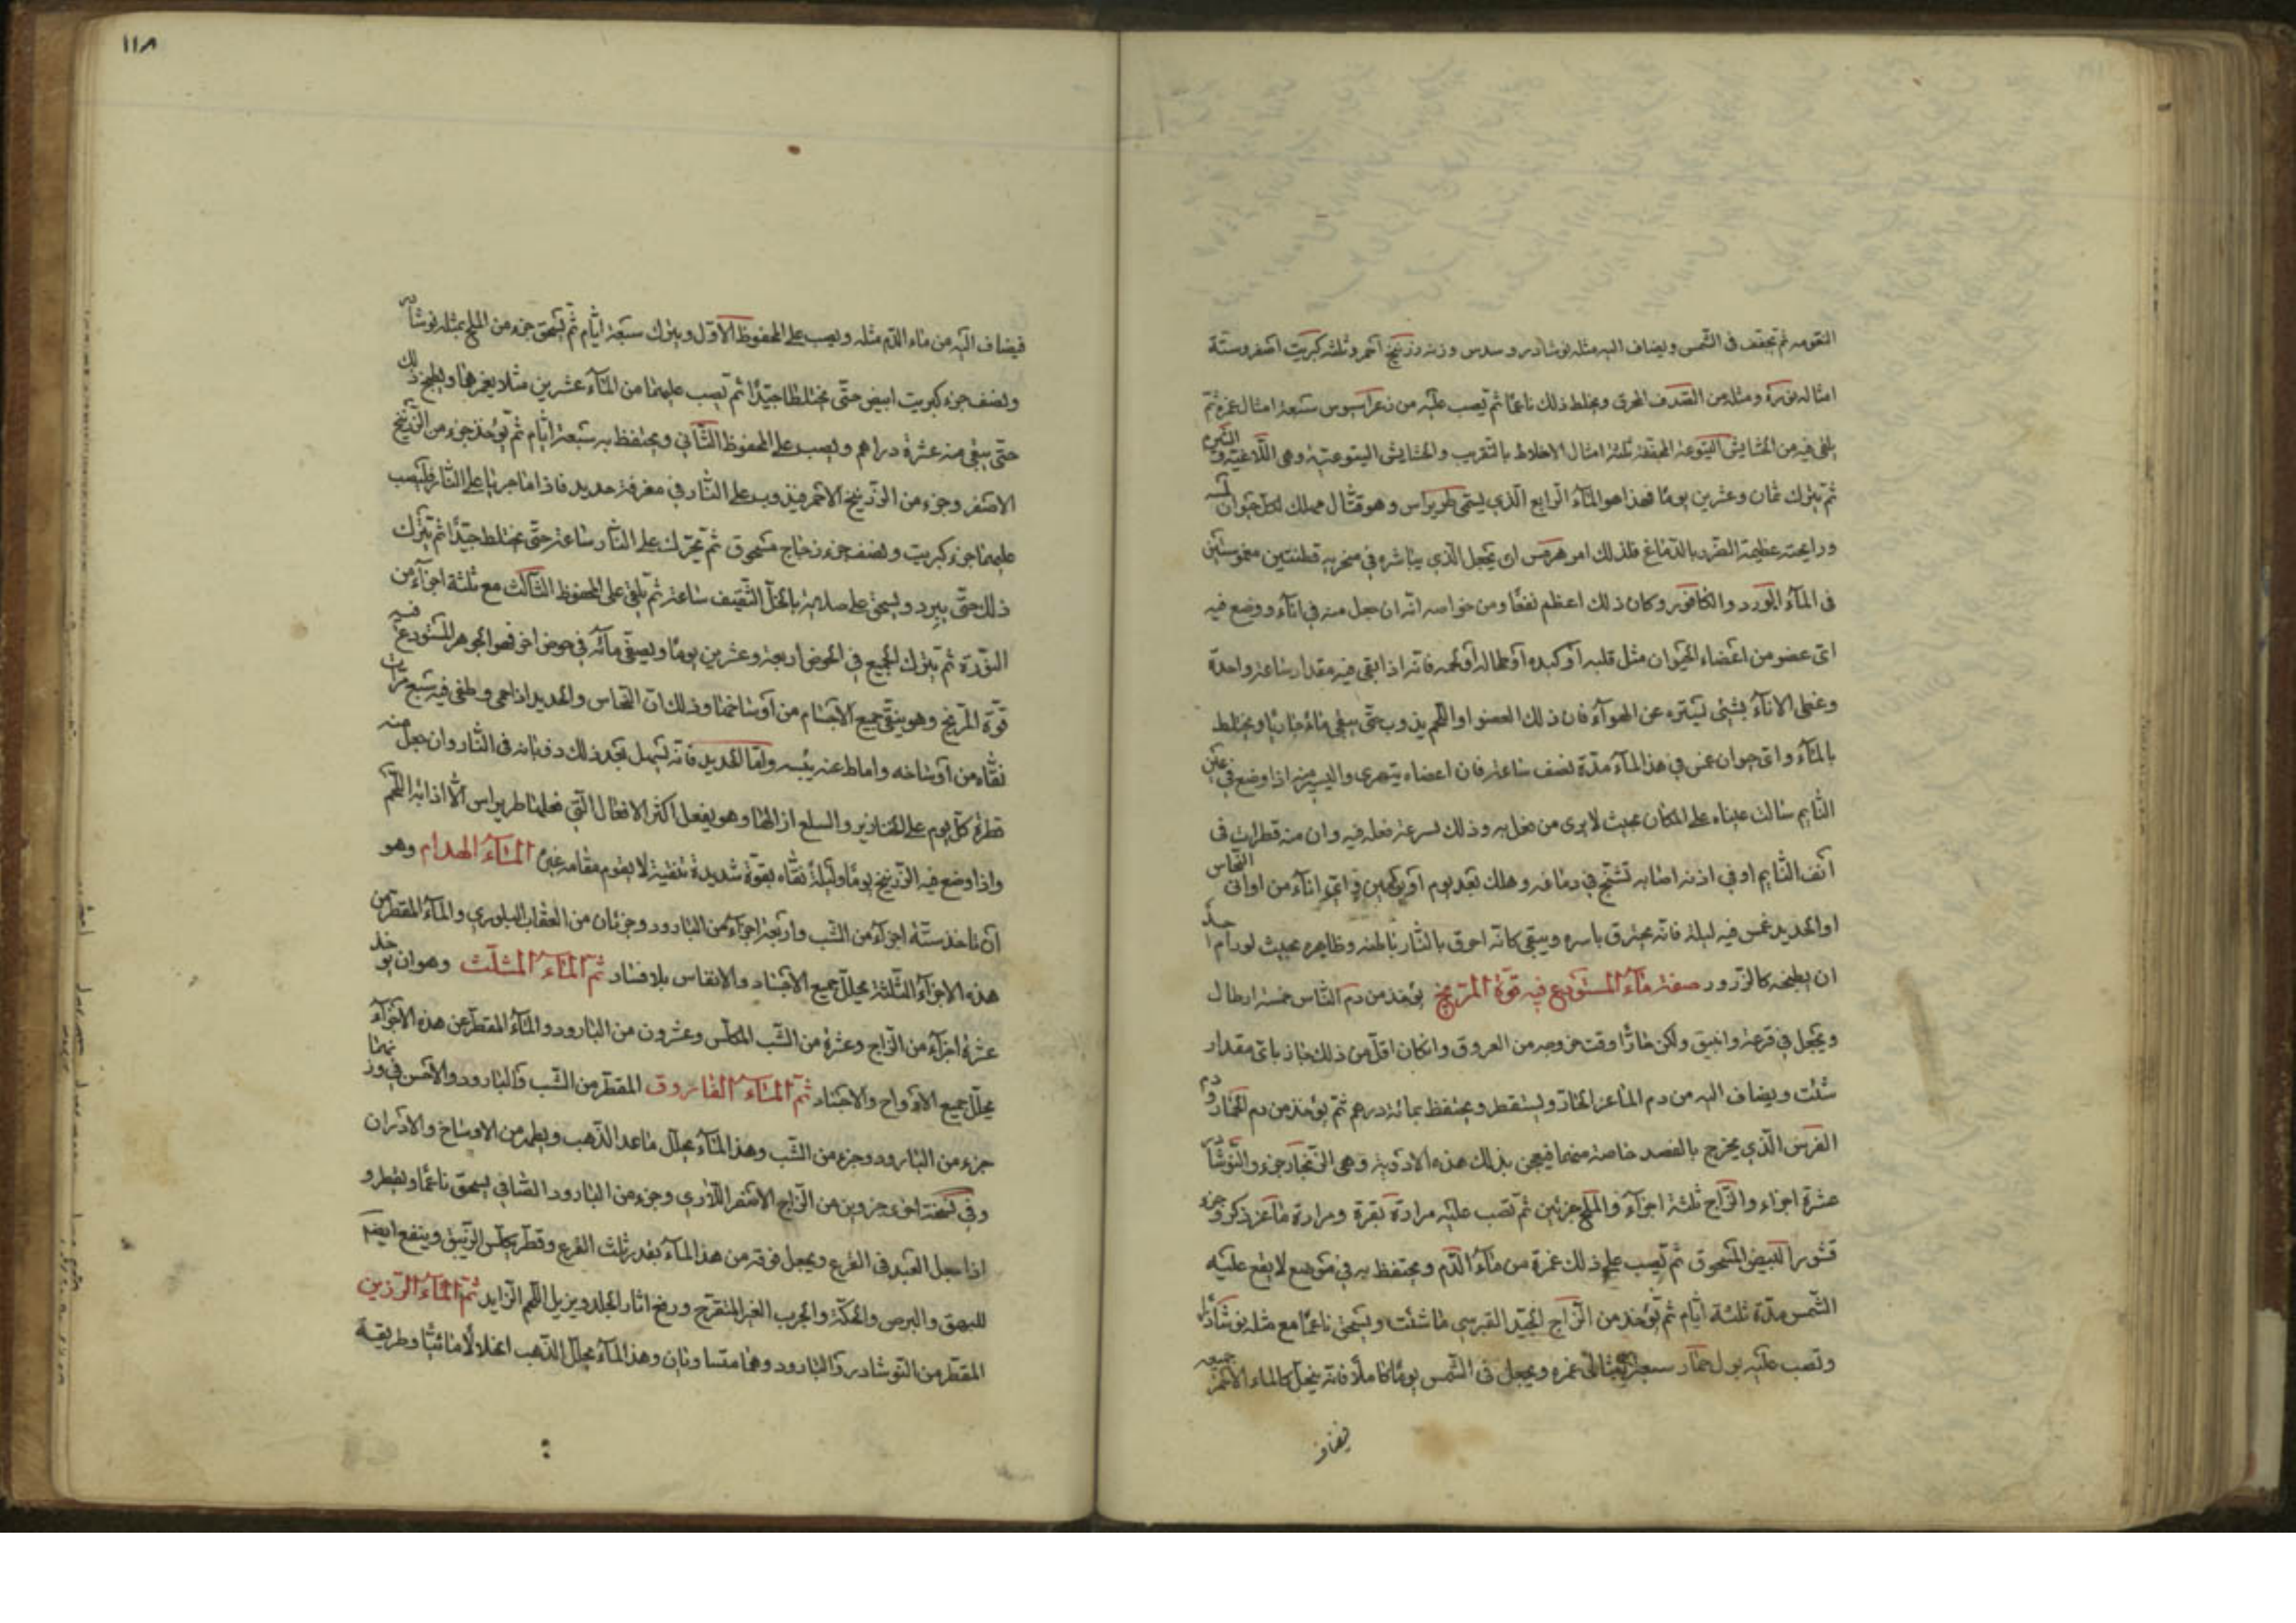 ثم تجفف فى الشمس ويضاف اليه مثله نوشادر وسدس وزنه زرنيخ احمر وثلثه كبريت اصفر وستة
امثاله نورة ومثله من الصدف المحرق ويخلط ذلك ناعما ثم يصب عليه من سبعة امثال غمره ثم
يلقى فيه من الحشايش اليتوعية المجففة ثلثة امثال الاخلاط بالتقريب والحشايش اليتوعية وهى اللاغية
ثم يترك ثمان وعشرين يوما فهذا هو الماء الرابع الذي يسمى طريراس وهو قتال مهلك لكل حيوان
ورايحته عظيمة الضرر بالدماغ فلذلك امر هرمس ان يجعل الذي يباشره في منخريه قطنتين مغموستين
فى الماء الورد والكافور وكان ذلك اعظم نفعا ومن خواصه انه ان جعل منه في اناء ووضع فيه
اى عضو من اعضاء الحيوان مثل قلبه او كبده او طحاله او لحمه فانه اذا بقى فيه مقدار ساعة واحدة
وغطى الاناء بشئ ليستره عن الهواء فان ذلك العضو او اللحم يذوب حتى يبقى ماء جاريا ويختلط
بالماء واى حيوان غمس في هذا الماء مدة نصف ساعة فان اعضاءه يتهرى واليسير منه اذا وضع في عين
النايم سالت عيناه على المكان بحيث لا يرى من دخل به وذلك لسرعة فعله فيه وان منه قطرات فى
انف النايم او في اذنه اصابه تشنج في دماغه وهلك بعد يوم او يومين في اى اناء من اوانى النحاس
او الحديد غمس فيه ليلة فانه يحترق باسره ويبقى كانه احرق بالنار باطنه وظاهره بحيث لو رام احد
ان يطحنه كالزرور صفة ماء المستودع فيه قوة المريخ يؤخذ من دم الناس خمسة ارطال
ويجعل في قرعة وانبيق ولكن حارا وقت خروجه من العروق وان كان اقل من ذلك جاز باى مقدار
شئت ويضاف اليه من دم الماعز الحار ويستقطر ويحتفظ بمائة درهم ثم يؤخذ من دم الحمار ودم
الفرس الذي يخرج بالفصد خاصة منهما فيعجن بذلك هذه الادوية وهى الزنجار جزء والنوشادر
عشرة اجزاء والزاج ثلثة اجزاء والملح جزئين ثم تصب عليه مرارة بقرة ومرارة ماعز ذكر وجزء
قشور البيض المسحوق ثم يصب على ذلك غمرة من ماء الدم ويحتفظ به في موضع لا يقع عليه
الشمس مدة ثلثة ايام ثم يؤخذ من الزاج الجيد القبرسى ما شئت ويسحق ناعما مع مثله نوشادرا
وتصب عليه بول حمار سبعة امثال غمره ويجعل فى الشمس يوما كاملا فانه ينحل كالماء الاحمر
فيضاف
١١٨
فيضاف اليه من ماء الدم مثله ويصب على المحفوظ الاول ويترك سبعة ايام ثم يسحق جزء من الملح بمثله نوشادر
ونصف جزء كبريت ابيض حتى يختلطا جيدا ثم تصب عليهما من الماء عشرين مثلا يغمرها ويطبخ ذلك
حتى يبقى منه عشرة دراهم ويصب على المحفوظ الثانى ويحتفظ به سبعة ايام ثم يؤخذ جزء من الزرنيخ
الاصفر وجزء من الزرنيخ الاحمر فيذوب على النار في مغرفة حديد فاذا ما جريا على النار فليصب
عليهما جزء كبريت ونصف جزء زجاج مسحوق ثم يحرك على النار ساعة حتى يختلط جيدا ثم يترك
ذلك حتى يبرد ويسحق على صلاية بالخل الثقيف ساعة ثم يلقى على المحفوظ الثالث مع ثلثة اجزاء من
النورة ثم يترك الجميع في الحوض اربعة وعشرين يوما ويصفى مائه في حوض اخر فهو الجوهر المستودع فيه
قوة المريخ وهو ينقى جميع الاجسام من اوساخها وذلك ان النحاس والحديد اذا احمى وطفى فيه سبع مرات
نقاه من اوساخه واماط عنه يبسه واما الحديد فانه يسهل بعد ذلك ذوبانه فى النار وان جعل منه
قطرة كل يوم على الخنازير والسلع ازالها وهو يفعل اكثر الافعال التى فعلها طريراس الا اذابة اللحم
واذا وضع فيه الزرنيخ يوما وليلة نقاه بقوة شديدة تنقية لا يقوم مقامه غيره الماء الهدام وهو
ان تاخذ ستة اجزاء من الشب واربعة اجزاء من البارود وجزئان من العقاب البلورى والماء المقطر من
هذه الاجزاء الثلثة يحلل جميع الاجساد والانفاس بلا فساد ثم الماء المثلث وهو ان يؤخذ
عشرة اجزاء من الزاج وعشرة من الشب المكلس وعشرون من البارود والماء المقطر عن هذه الاجزاء
يحلل جميع الارواح والاجساد ثم الماء الفاروق المقطر من الشب والبارود والاحسن في وزنهما
جزء من البارود وجزء من الشب وهذا الماء يحلل ما عدا الذهب ويطهر من الاوساخ والادران
وفى نسخة اخرى جزوين من الزاج الاصفر اللازرى وجزء من البارود الشافى يسحق ناعما ويقطر و
اذا جعل العبد فى القرع ويجعل فوقه من هذا الماء بقدر ثلث القرع وقطر يكلس الزيبق وينفع ايضا
للبهق والبرص والحكة والجرب الغير المتقرح ورفع اثار الجلد ويزيل اللحم الزايد ثم الماء الرزين
المقطر من النوشادر والبارود وهما متساويان وهذا الماء يحلل الذهب انحلالا مائيا وطريقة